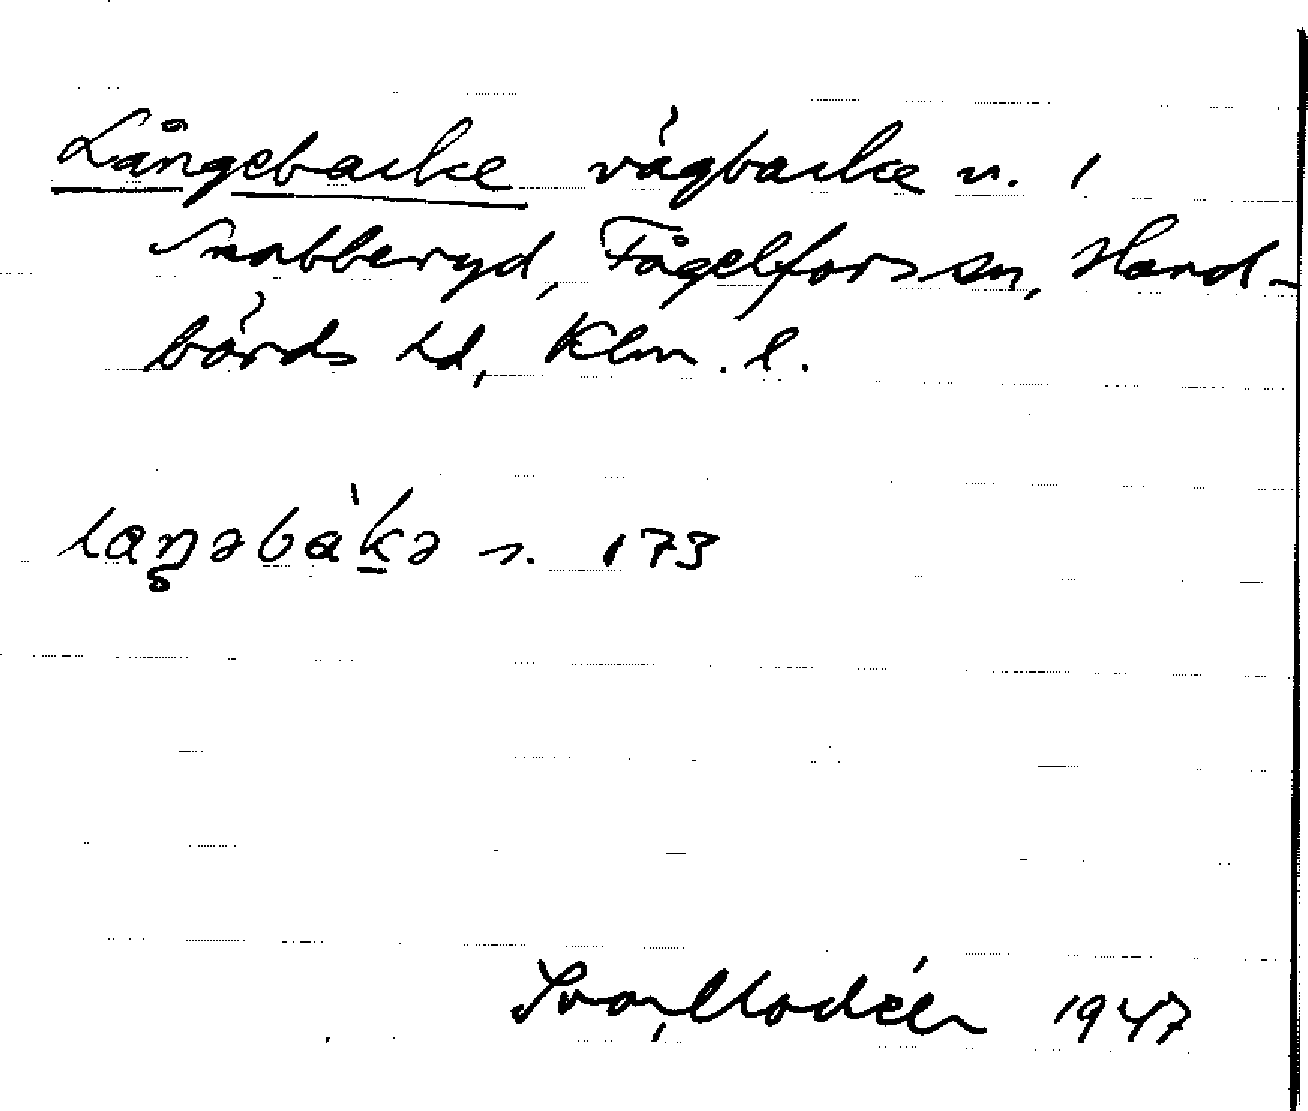 Långebacke vägbacke n. i
Snabberyd, Fågelfors sn, Hand-
börds hd, Klm. l.
s. 173
Ivar Modéer 1947